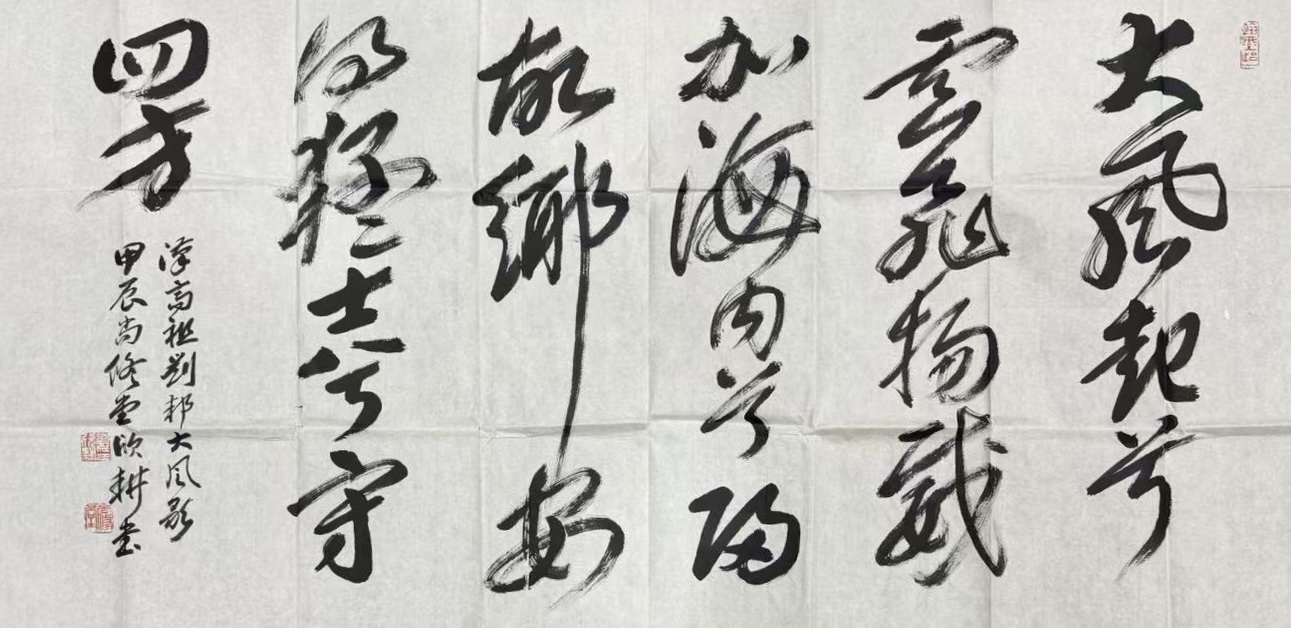 大風起兮
雲飛揚威
加海内兮歸
故鄉安
得猛士兮守
四方
漢高祖劉邦大風歌
甲辰尚修堂欣耕书